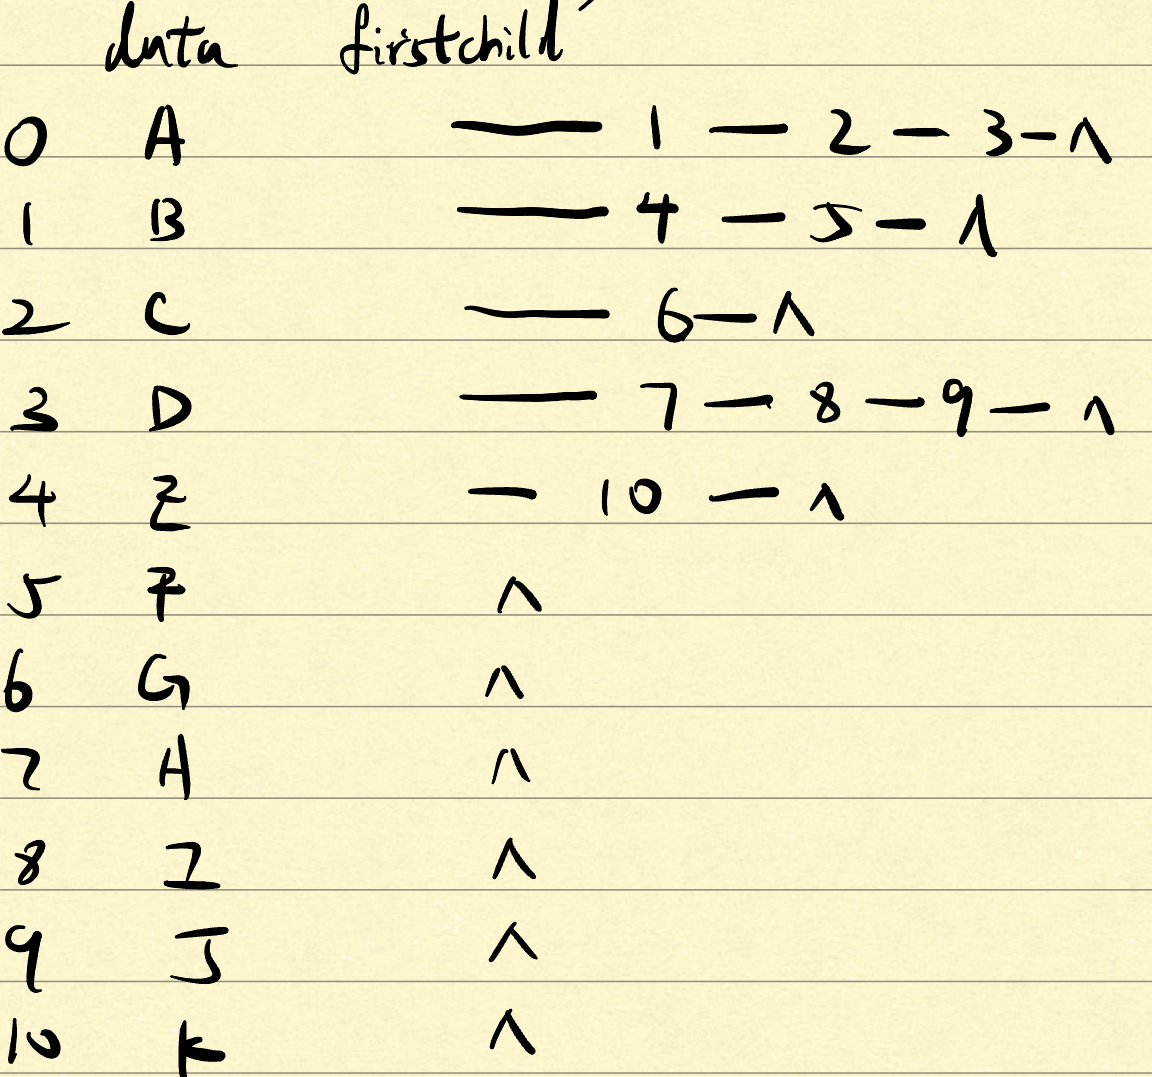 data firstchild
0 A — 1 — 2 — 3 — ∧
1 B — 4 — 5 — ∧
2 C — 6 — ∧
3 D — 7 — 8 — 9 — ∧
4 E — 10 — ∧
5 F ∧
6 G ∧
7 H ∧
8 I ∧
9 J ∧
10 K ∧